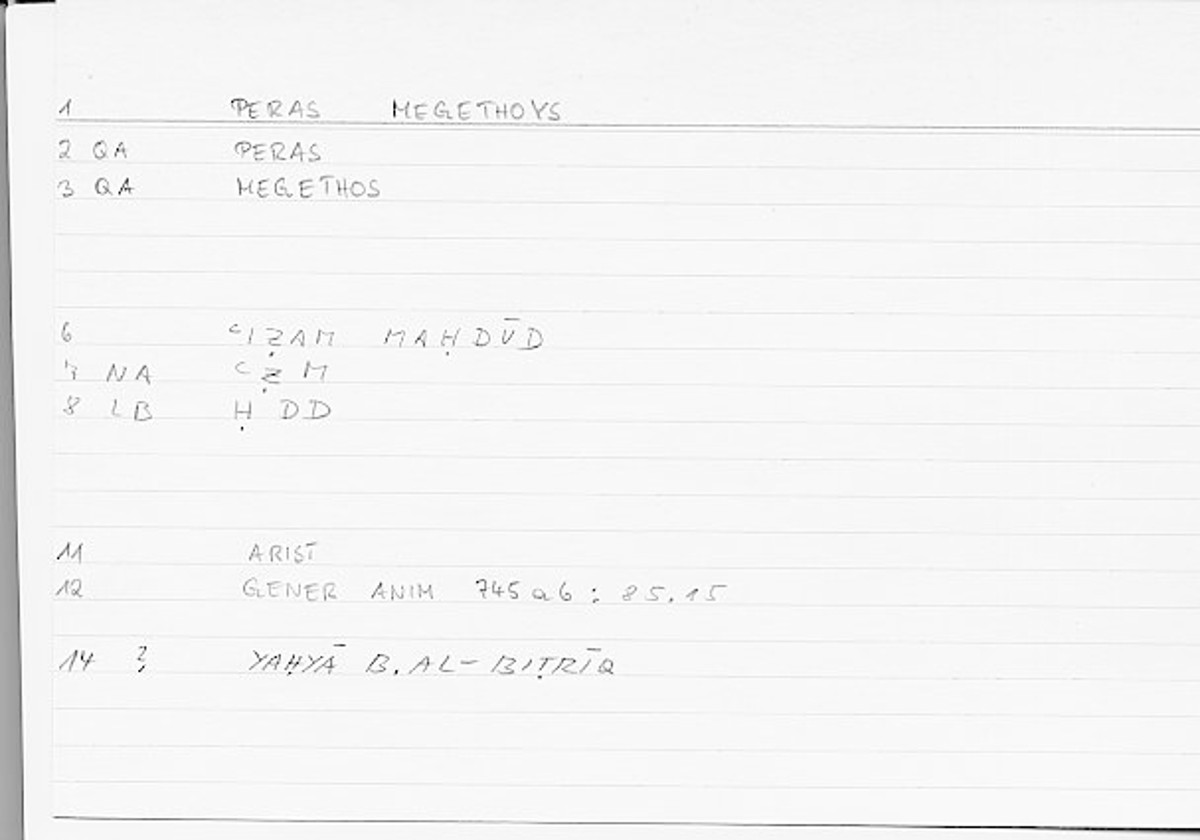 1 PERAS MEGETHOYS
2 QA PERAS
3 QA MEGETHOS
6 ʿIẒAM MAḤDŪD
7 NA ʿẒM
8 LB ḤDD
11 ARIST
12 GENER ANIM 745 a 6 : 85.15
14 ? YAḤYĀ B. AL-BIṬRĪQ